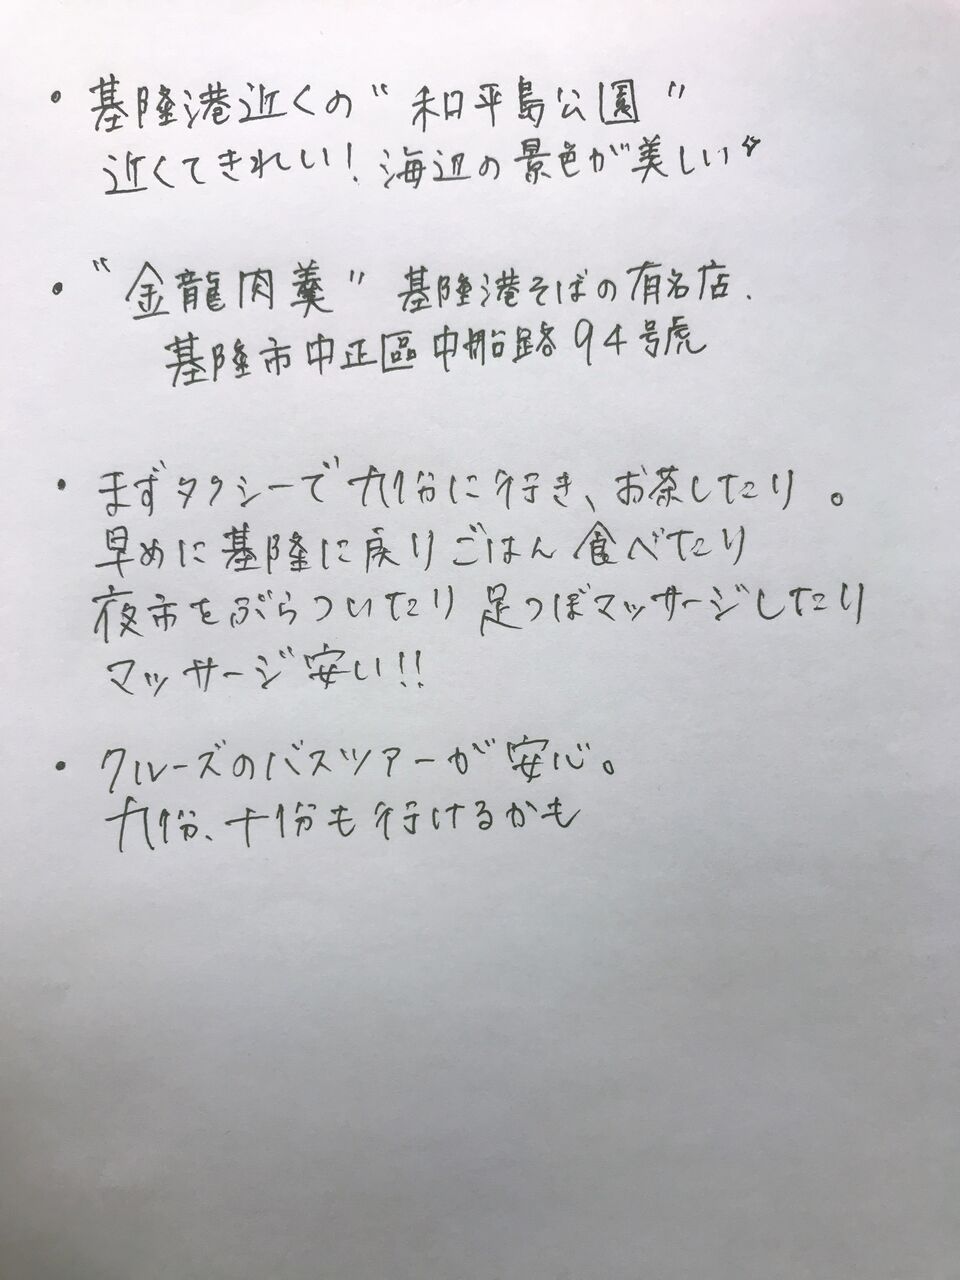 ・基隆港近くの"和平島公園"
近くてきれい！海辺の景色が美しい☆
・"金龍肉羹" 基隆港そばの有名店.
基隆市中正區中船路94号虎
・まずタクシーで九份に行き、お茶したり。
早めに基隆に戻りごはん食べたり
夜市をぶらついたり足つぼマッサージしたり
マッサージ安い!!
・クルーズのバスツアーが安心。
九份、十份も行けるかも